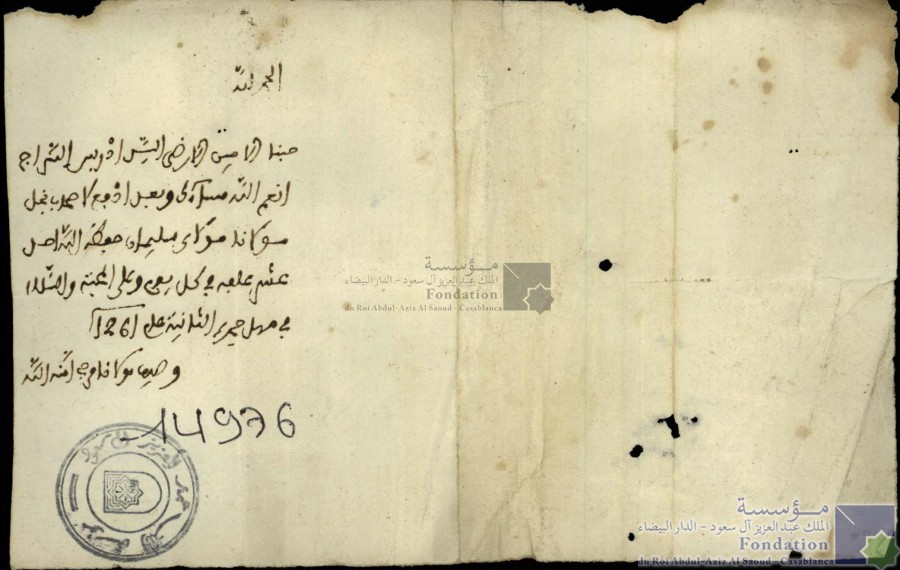 الحمد لله
حبنا الامين الارضى السيد ادريس السراج
انعم الله مساءك وبعد ادفع لاصحاب نجل
مولانا مولاي سليمان حفظه الله
عشر علفة في كل يوم وعلى المحبة والسلام
في مهل جمدى الثانية عام 1261
وصيف مولانا فرجي امنه الله
14976
مؤسسة
الملك عبد العزيز آل سعود - الدار البيضاء
Fondation
du Roi Abdul-Aziz Al Saoud - Casablanca
مؤسسة
الملك عبد العزيز آل سعود - الدار البيضاء
Fondation
du Roi Abdul-Aziz Al Saoud - Casablanca